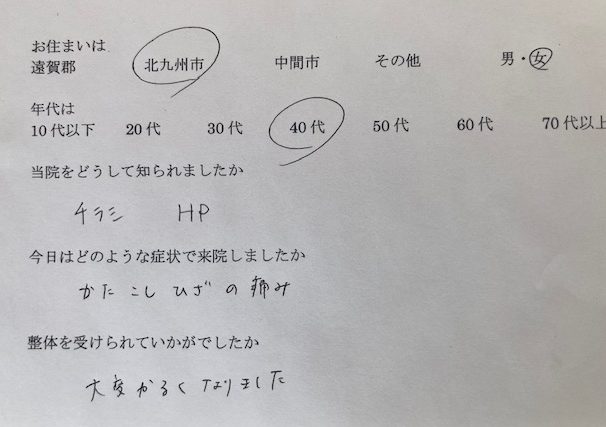 お住まいは
遠賀郡 北九州市 中間市 その他 男・女
年代は
10代以下 20代 30代 40代 50代 60代 70代以上
当院をどうして知られましたか
チラシ HP
今日はどのような症状で来院しましたか
かた こし ひざ の 痛み
整体を受けられていかがでしたか
大変かるくなりました